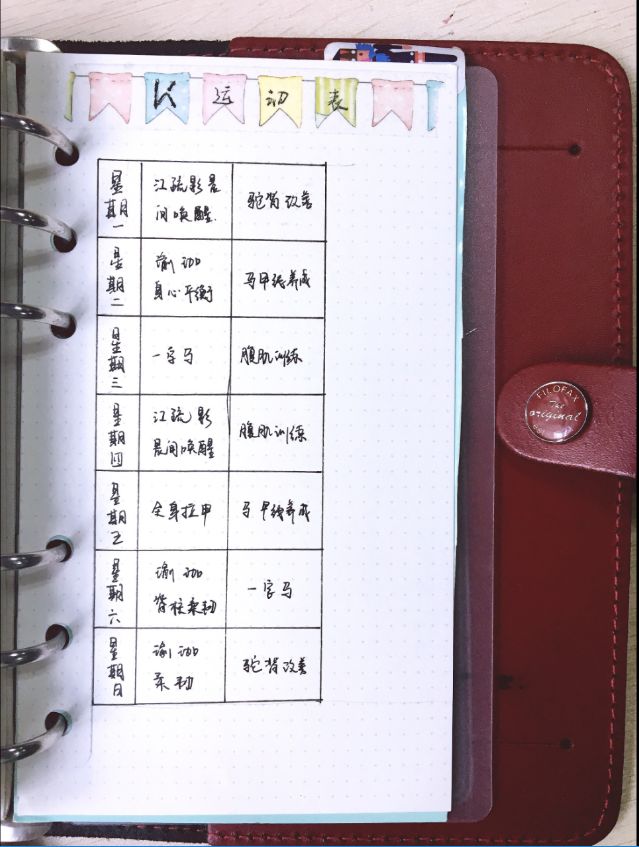 K运动表
星期一
江疏影晨间唤醒
驼背改善
星期二
瑜伽
身心平衡
马甲线养成
星期三
一字马
腹肌训练
星期四
江疏影
晨间唤醒
腹肌训练
星期五
全身拉甲
马甲线养成
星期六
瑜伽
脊柱柔韧
一字马
星期日
瑜伽
柔韧
驼背改善
FILOFAX
The
original